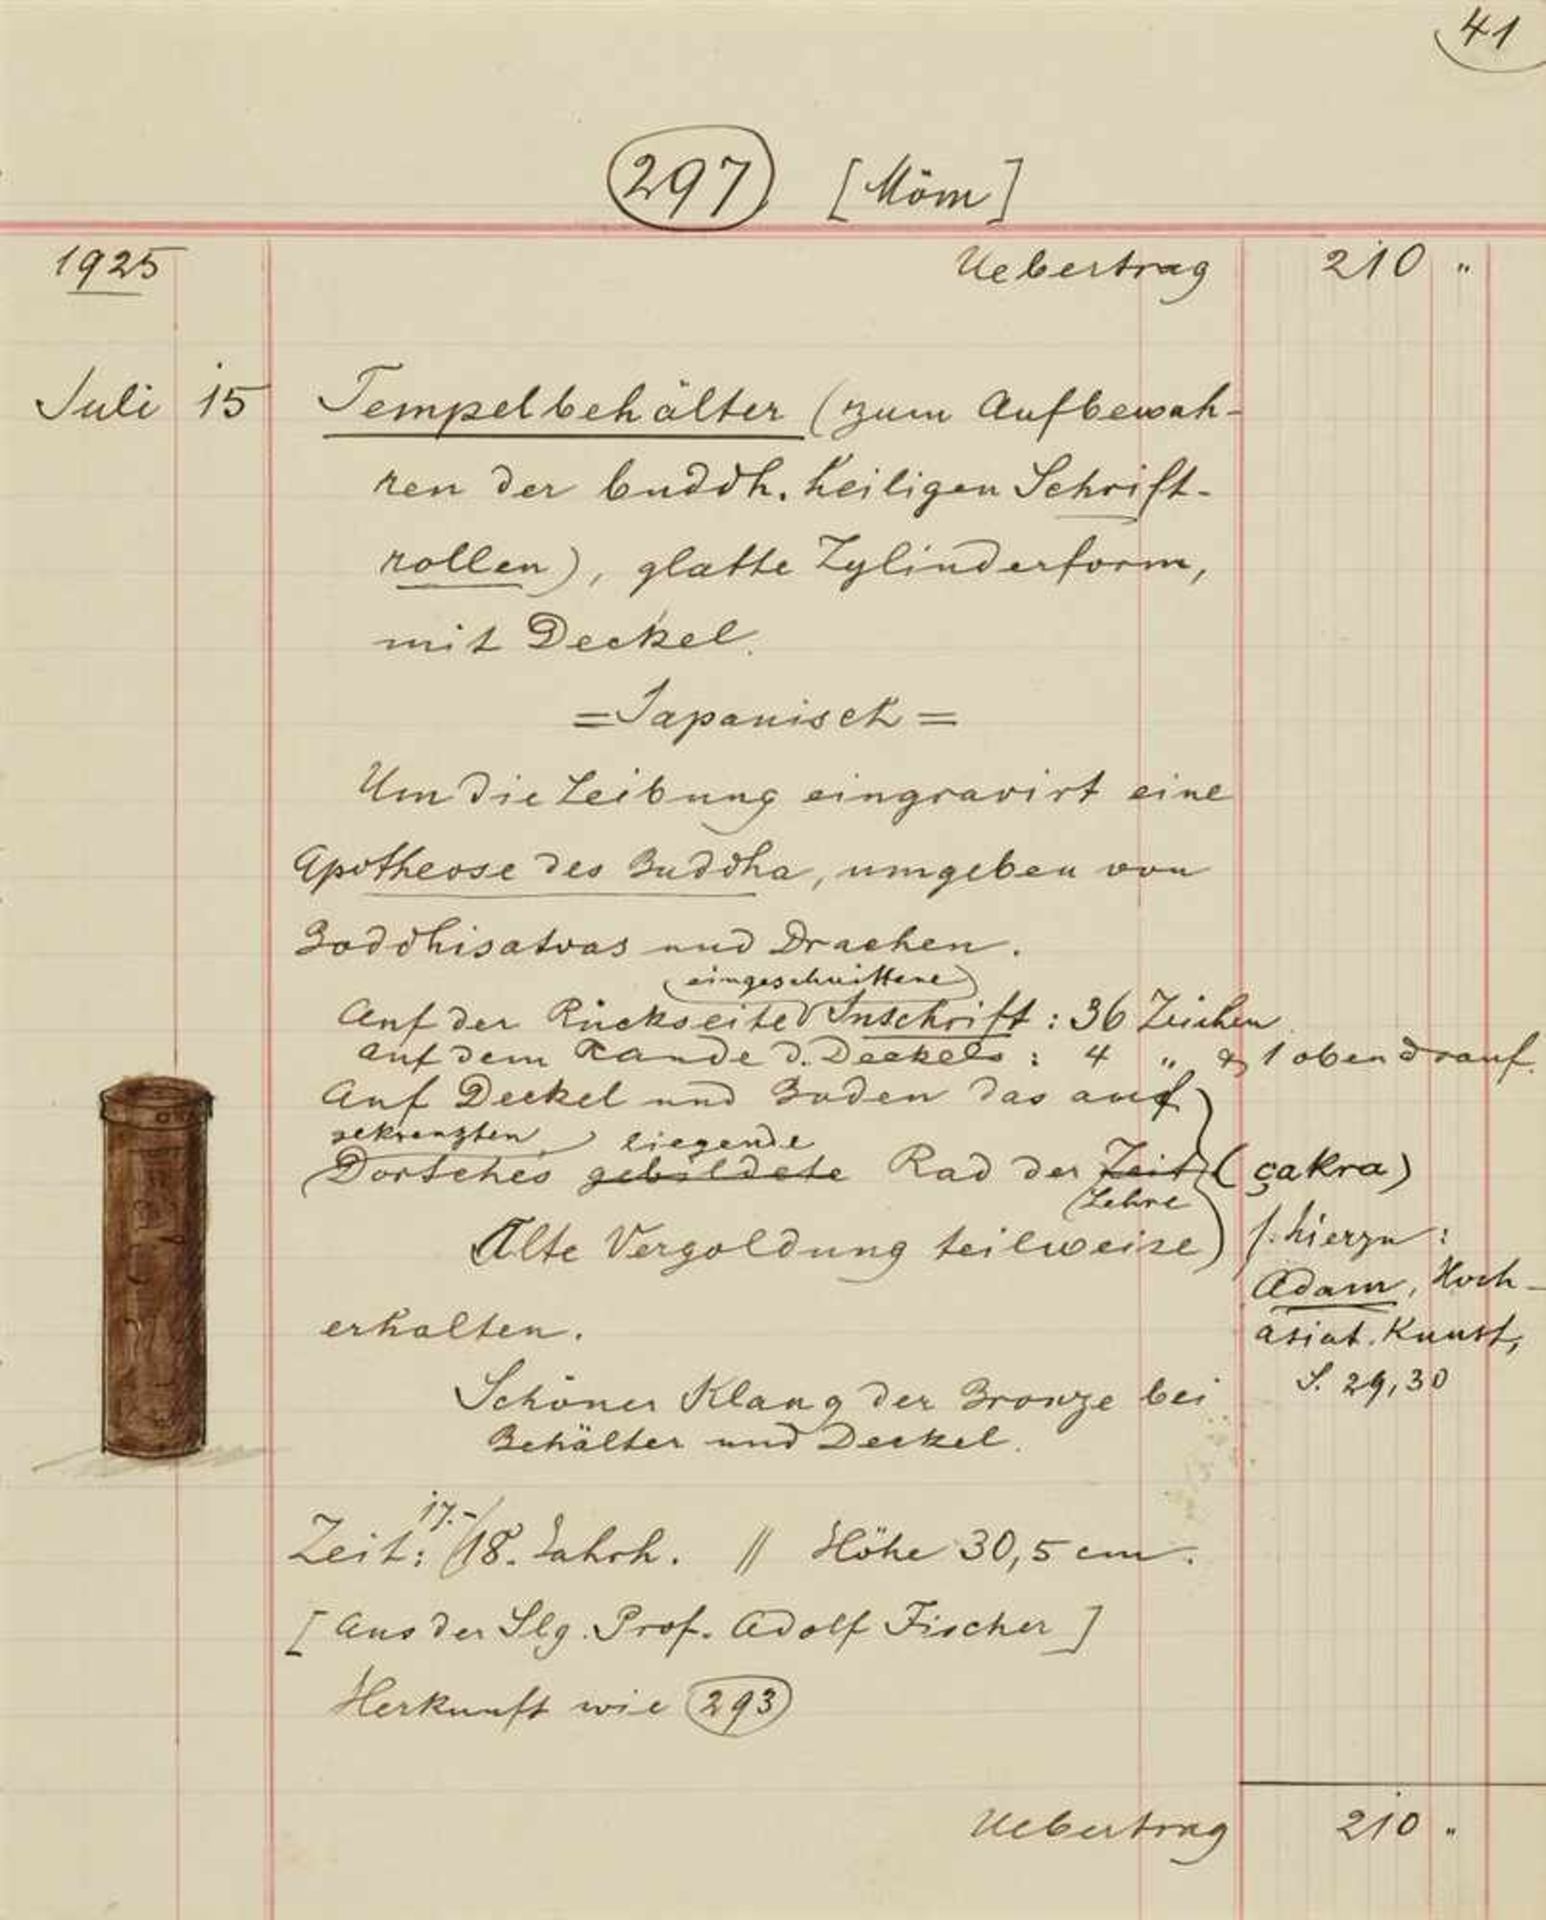 41
297 [Möm]
1925 Uebertrag 210 "
Juli 15 Tempelbehälter (zum Aufbewah-
ren der buddh. heiligen Schrift-
rollen), glatte Zylinderform,
mit Deckel.
= Japanisch =
Um die Leibung eingravirt eine
Apotheose des Buddha, umgeben von
Boddhisatvas und Drachen.
(eingeschnittene)
Auf der Rückseite Inschrift: 36 Zeichen
auf dem Rande d. Deckels: 4 " & 1 obendrauf.
Auf Deckel und Boden das auf
gekreuzten liegende
Dortsches gebildete Rad der Zeit (çakra)
Lehre
Alte Vergoldung teilweise
s. hierzu:
Adam, Hoch-
erhalten.
asiat. Kunst,
S. 29,30
Schöner Klang der Bronze bei
Behälter und Deckel.
17.-
Zeit: /18. Jahrh. // Höhe 30,5 cm.
[Aus der Slg. Prof. Adolf Fischer]
Herkunft wie 293
Uebertrag 210 "